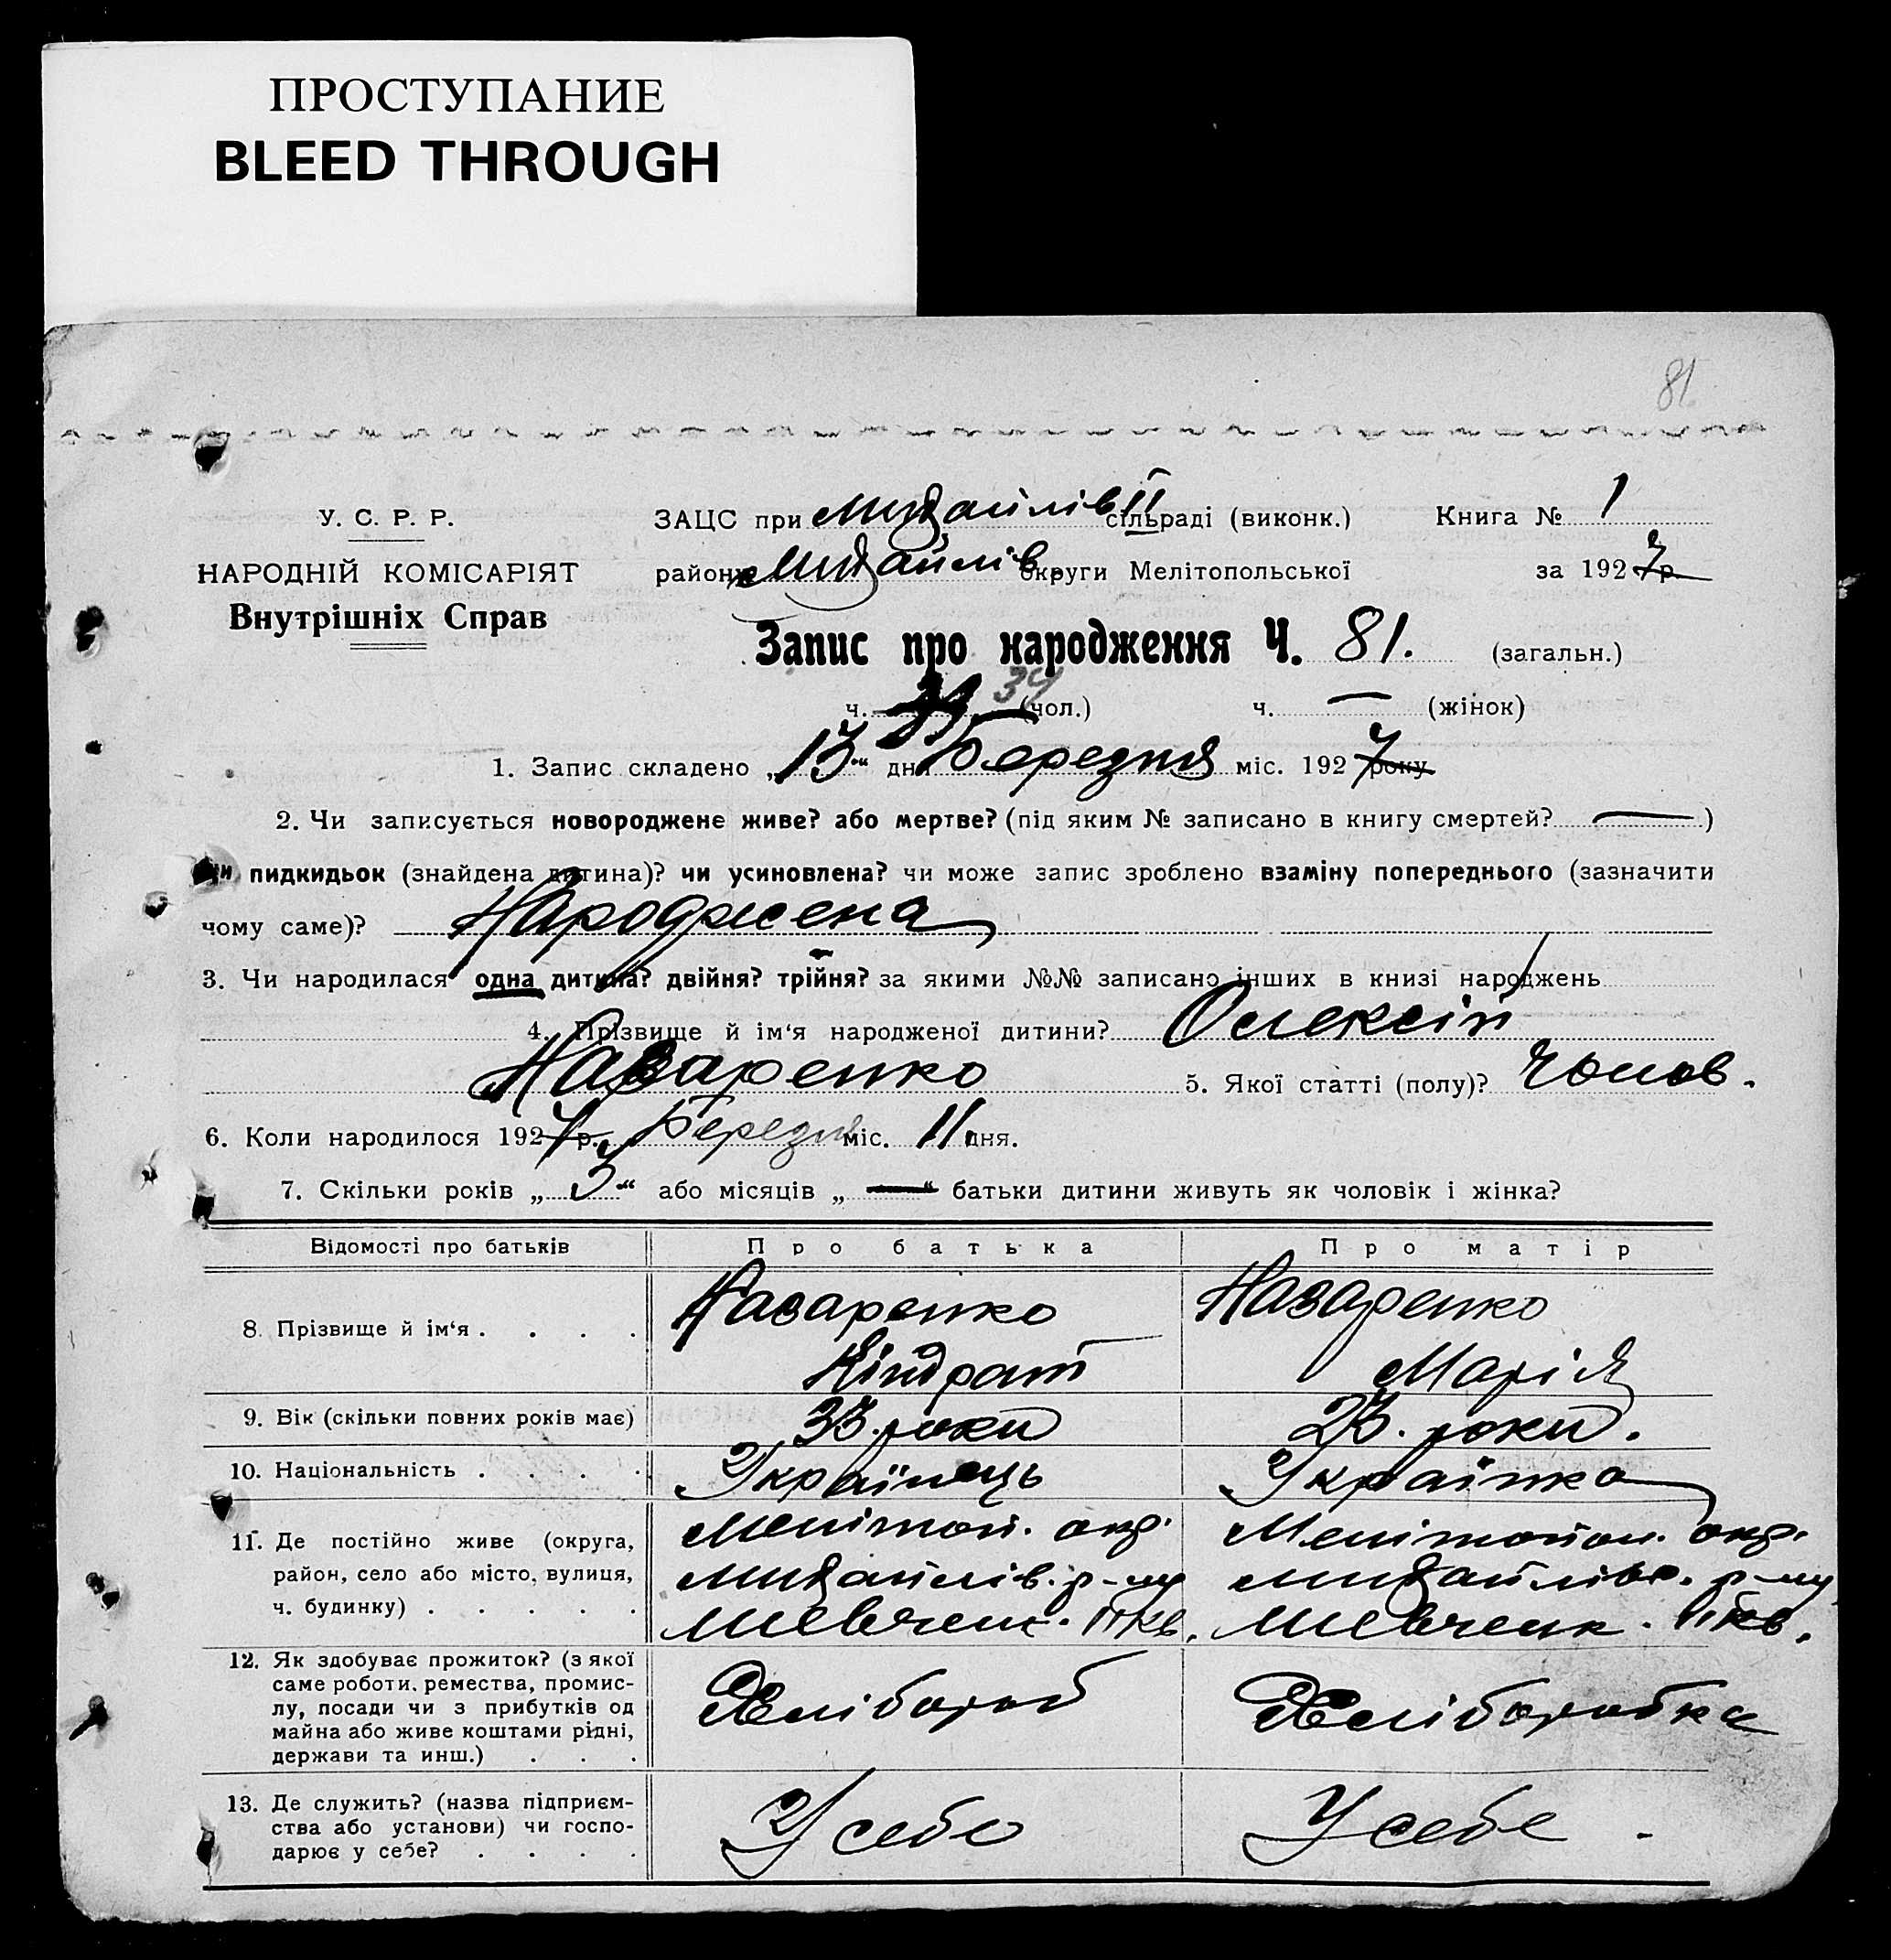 ПРОСТУПАНИЕ
BLEED THROUGH
81
У. С. Р. Р.
НАРОДНІЙ КОМІСАРІЯТ
Внутрішніх Справ
ЗАЦС при Михайлів II сільраді (виконк.) Книга № 1
району Михайлів округи Мелітопольської за 1927 р.
Запис про народження Ч. 81. (загальн.)
ч. 34 (чол.) ч. — (жінок)
1. Запис складено „13“ дня Березня міс. 1927 року
2. Чи записується новороджене живе? або мертве? (під яким № записано в книгу смертей? —)
чи пидкидьок (знайдена дитина)? чи усиновлена? чи може запис зроблено взаміну попереднього (зазначити
чому саме)? Народжена
3. Чи народилася одна дитина? двійня? трійня? за якими №№ записано інших в книзі народжень
4. Прізвище й ім‘я народженої дитини? Олексій
Назаренко 5. Якої статті (полу)? Чолов.
6. Коли народилося 1927 р. Березня міс. 11 дня.
7. Скільки років „3“ або місяців „—“ батьки дитини живуть як чоловік і жінка?
Відомості про батьків Про батька Про матір
8. Прізвище й ім‘я . . . . Назаренко Кіндрат Назаренко Марія
9. Вік (скільки повних років має) 33. роки 23. роки.
10. Національність . . . . Українець Українка
11. Де постійно живе (округа, Мелітоп. окр. Мелітопол. окр.
район, село або місто, вулиця, Михайлів. р-ну Михайлівс. р-ну
ч. будинку) . . . . . Шевченк. II кв. Шевченк. II кв.
12. Як здобуває прожиток? (з якої
саме роботи, ремества, промис-
лу, посади чи з прибутків од Хлібороб Хліборобка
майна або живе коштами рідні,
держави та инш.) . . .
13. Де служить? (назва підприєм-
ства або установи) чи госпо- У себе У себе
дарює у себе? . . . .